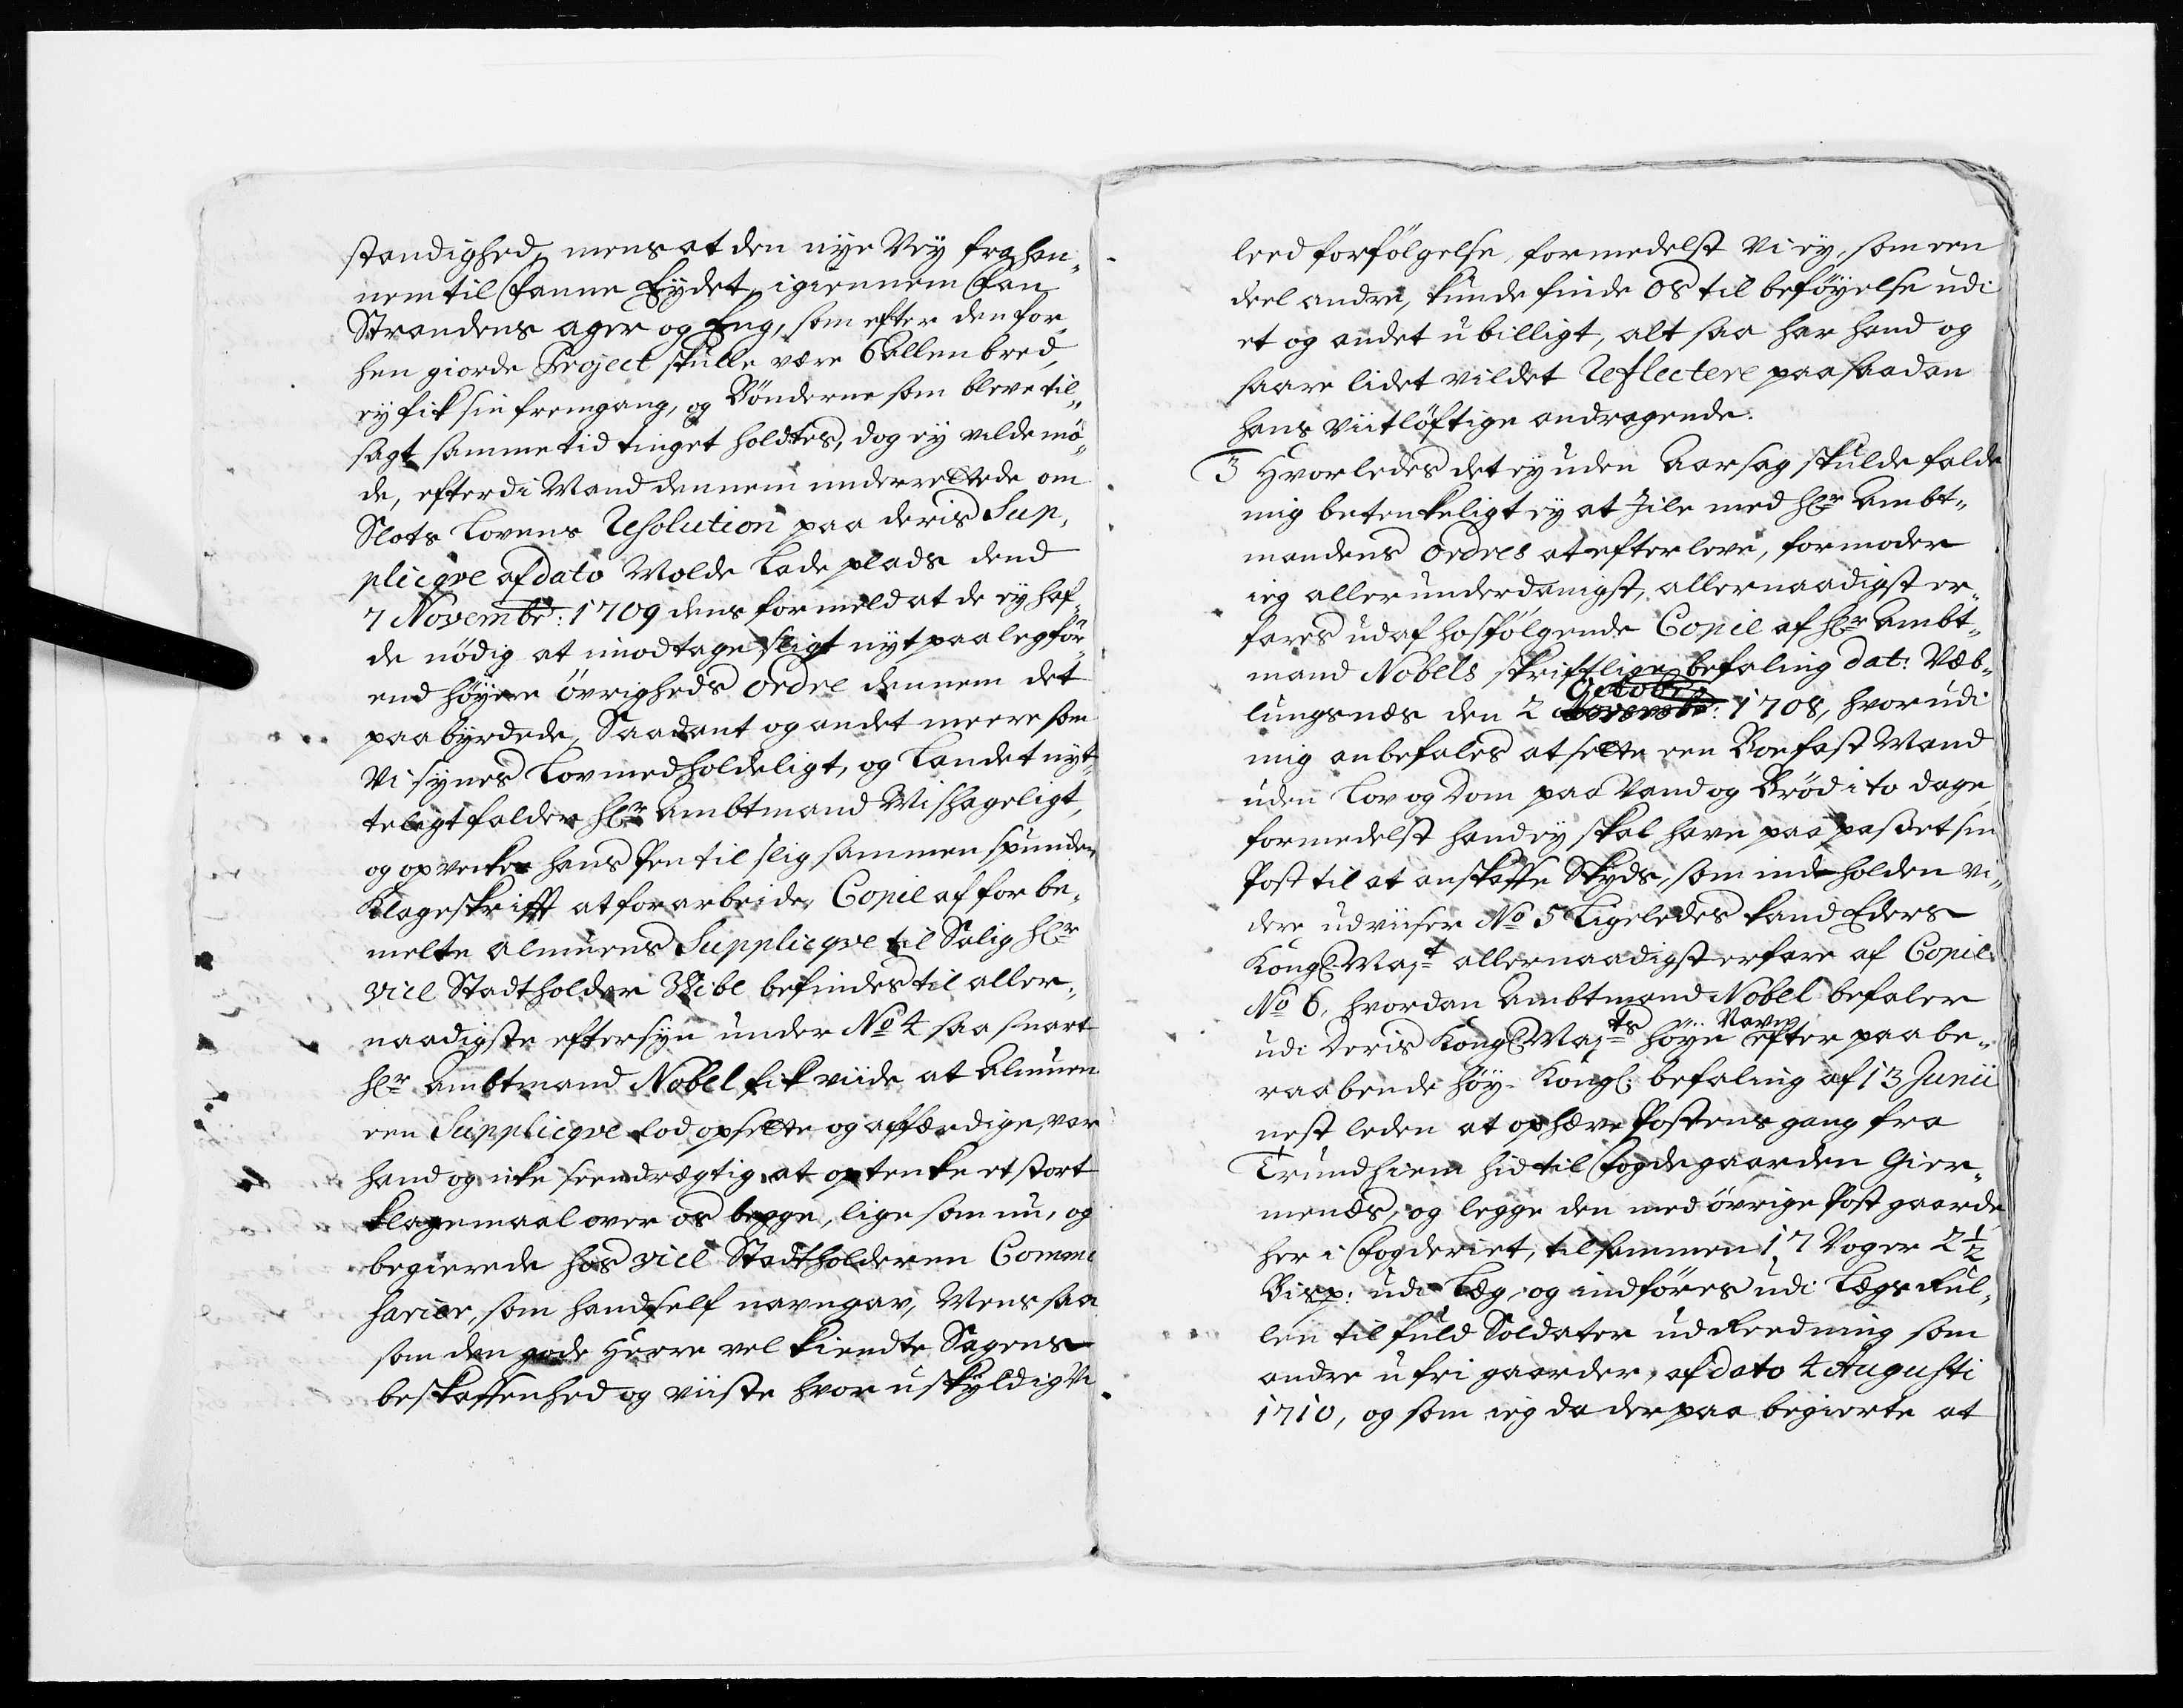 standighed, mens at den nÿe Veÿ fra Han„
nem til Fanne Eÿdet, igiennem Fan
Strandens ager og Eng, som efter den for„
hen giorde Project skulle være 6 allen bred,
eÿ fik sin fremgang, og Bönderne som bleve til„
sagt samme tid tinget holdtes, dog eÿ vilde mö„
de, efterdi Mand dennem underrettede om
Slots Lovens Resolution paa deris Sup„
pliqve af dato Molde Lade plads dend
7 Novembr: 1709 dens formeld at de eÿ haf„
de nödig at imodtage sligt nÿt paaleg för
end höÿere övrigheds ordre dennem det
paabÿrdede, Saadant og andet meere som
Vi sÿnes Lovmedholdeligt, og Landet nÿt„
teligt falder Hr Ambtmand Mishageligt,
og opvecker hans Pen til slig sammenspunden
Klageskrifft at forarbeide. Copie af forbe„
melte almuens Suppliqve til Salig Hr
Vice Stadtholder Vibe befindes til aller„
naadigste eftersÿn under No 4 saa snart
Hr Ambtmand Nobel fik viide at almuen
een Suppliqve lod opsette og affærdige, var
hand og icke seendrægtig at optenke et stort
klagemaal over os begge, lige som nu, og
begierede hos Vice Stadtholderen Comme
sarier, som hand self navngav, Mens saa
som den gode Herre vel kiendte Sagens
beskaffenhed og viiste hvor uskÿldig Vi
leed forfölgelse, formedelst Vi eÿ, som een
deel andre, kunde finde os til beföÿelse udi
et og andet ubilligt, alt saa har hand og
saare lidet vildet Reflectere paa saadan
hans viitlöftige andragende.
3 Hvorledes det eÿ uden Aarsag skulde falde
mig betenkeligt eÿ at Jile med Hr Ambt„
mandens ordres at efterleve, formoder
ieg allerunderdanigst, allernaadigst er„
fares udaf hosfölgende Copie af Hr Ambt„
mand Nobels skriftlige befaling dat: Væb„
Octobr:
lungsnæs den 2 Novembr: 1708, hvorudi
mig anbefales at sette een Boefast Mand
uden Lov og Dom paa Vand og Bröd i to dage
formedelst hand eÿ skal have paa passet sin
Post til at anskaffe Skÿds, som indeholden vi„
dere udviiser No 5 Ligeledes kand Eders
Kongl: Majt allernaadigst erfare af Copie
No 6, hvordan Ambtmand Nobel befaler
Navn
udi Deris Kongl: Majts höÿe efter paabe„
raabende höÿ Kongl: befaling af 13 Junii
nest leden at ophæve Postens gang fra
Trundhiem hid til Fogdegaarden Gier„
mends, og legge den med övrige Post gaarde
her i Fogderiet, tilsammen 17 Voger 2 1/2
Bisp: udi Læg, og indföres udi Lægs Rul„
len til fuld Soldater udReedning som
andre ufri gaarder, af dato 4 Augusti
1710, og som ieg da derpaa begierte at